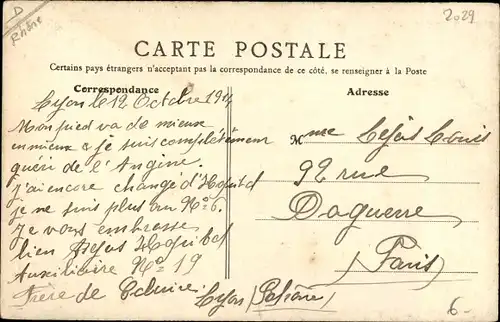 D
Rhône
2029
CARTE POSTALE
Certains pays étrangers n'acceptant pas la correspondance de ce côté, se renseigner à la Poste
Correspondance
Adresse
Lyon le 12 Octobre 1914
Mon pied va de mieux
en mieux & je suis complètement
guéri de l'Angine.
J'ai encore changé d'Hopital
je ne suis plus au N° 6.
Je vous embrasse
bien Hopital
Auxiliaire N° 19
de Lyon (Rhône)
Mme Louis
92 rue
Daguerre
(Paris)
6-